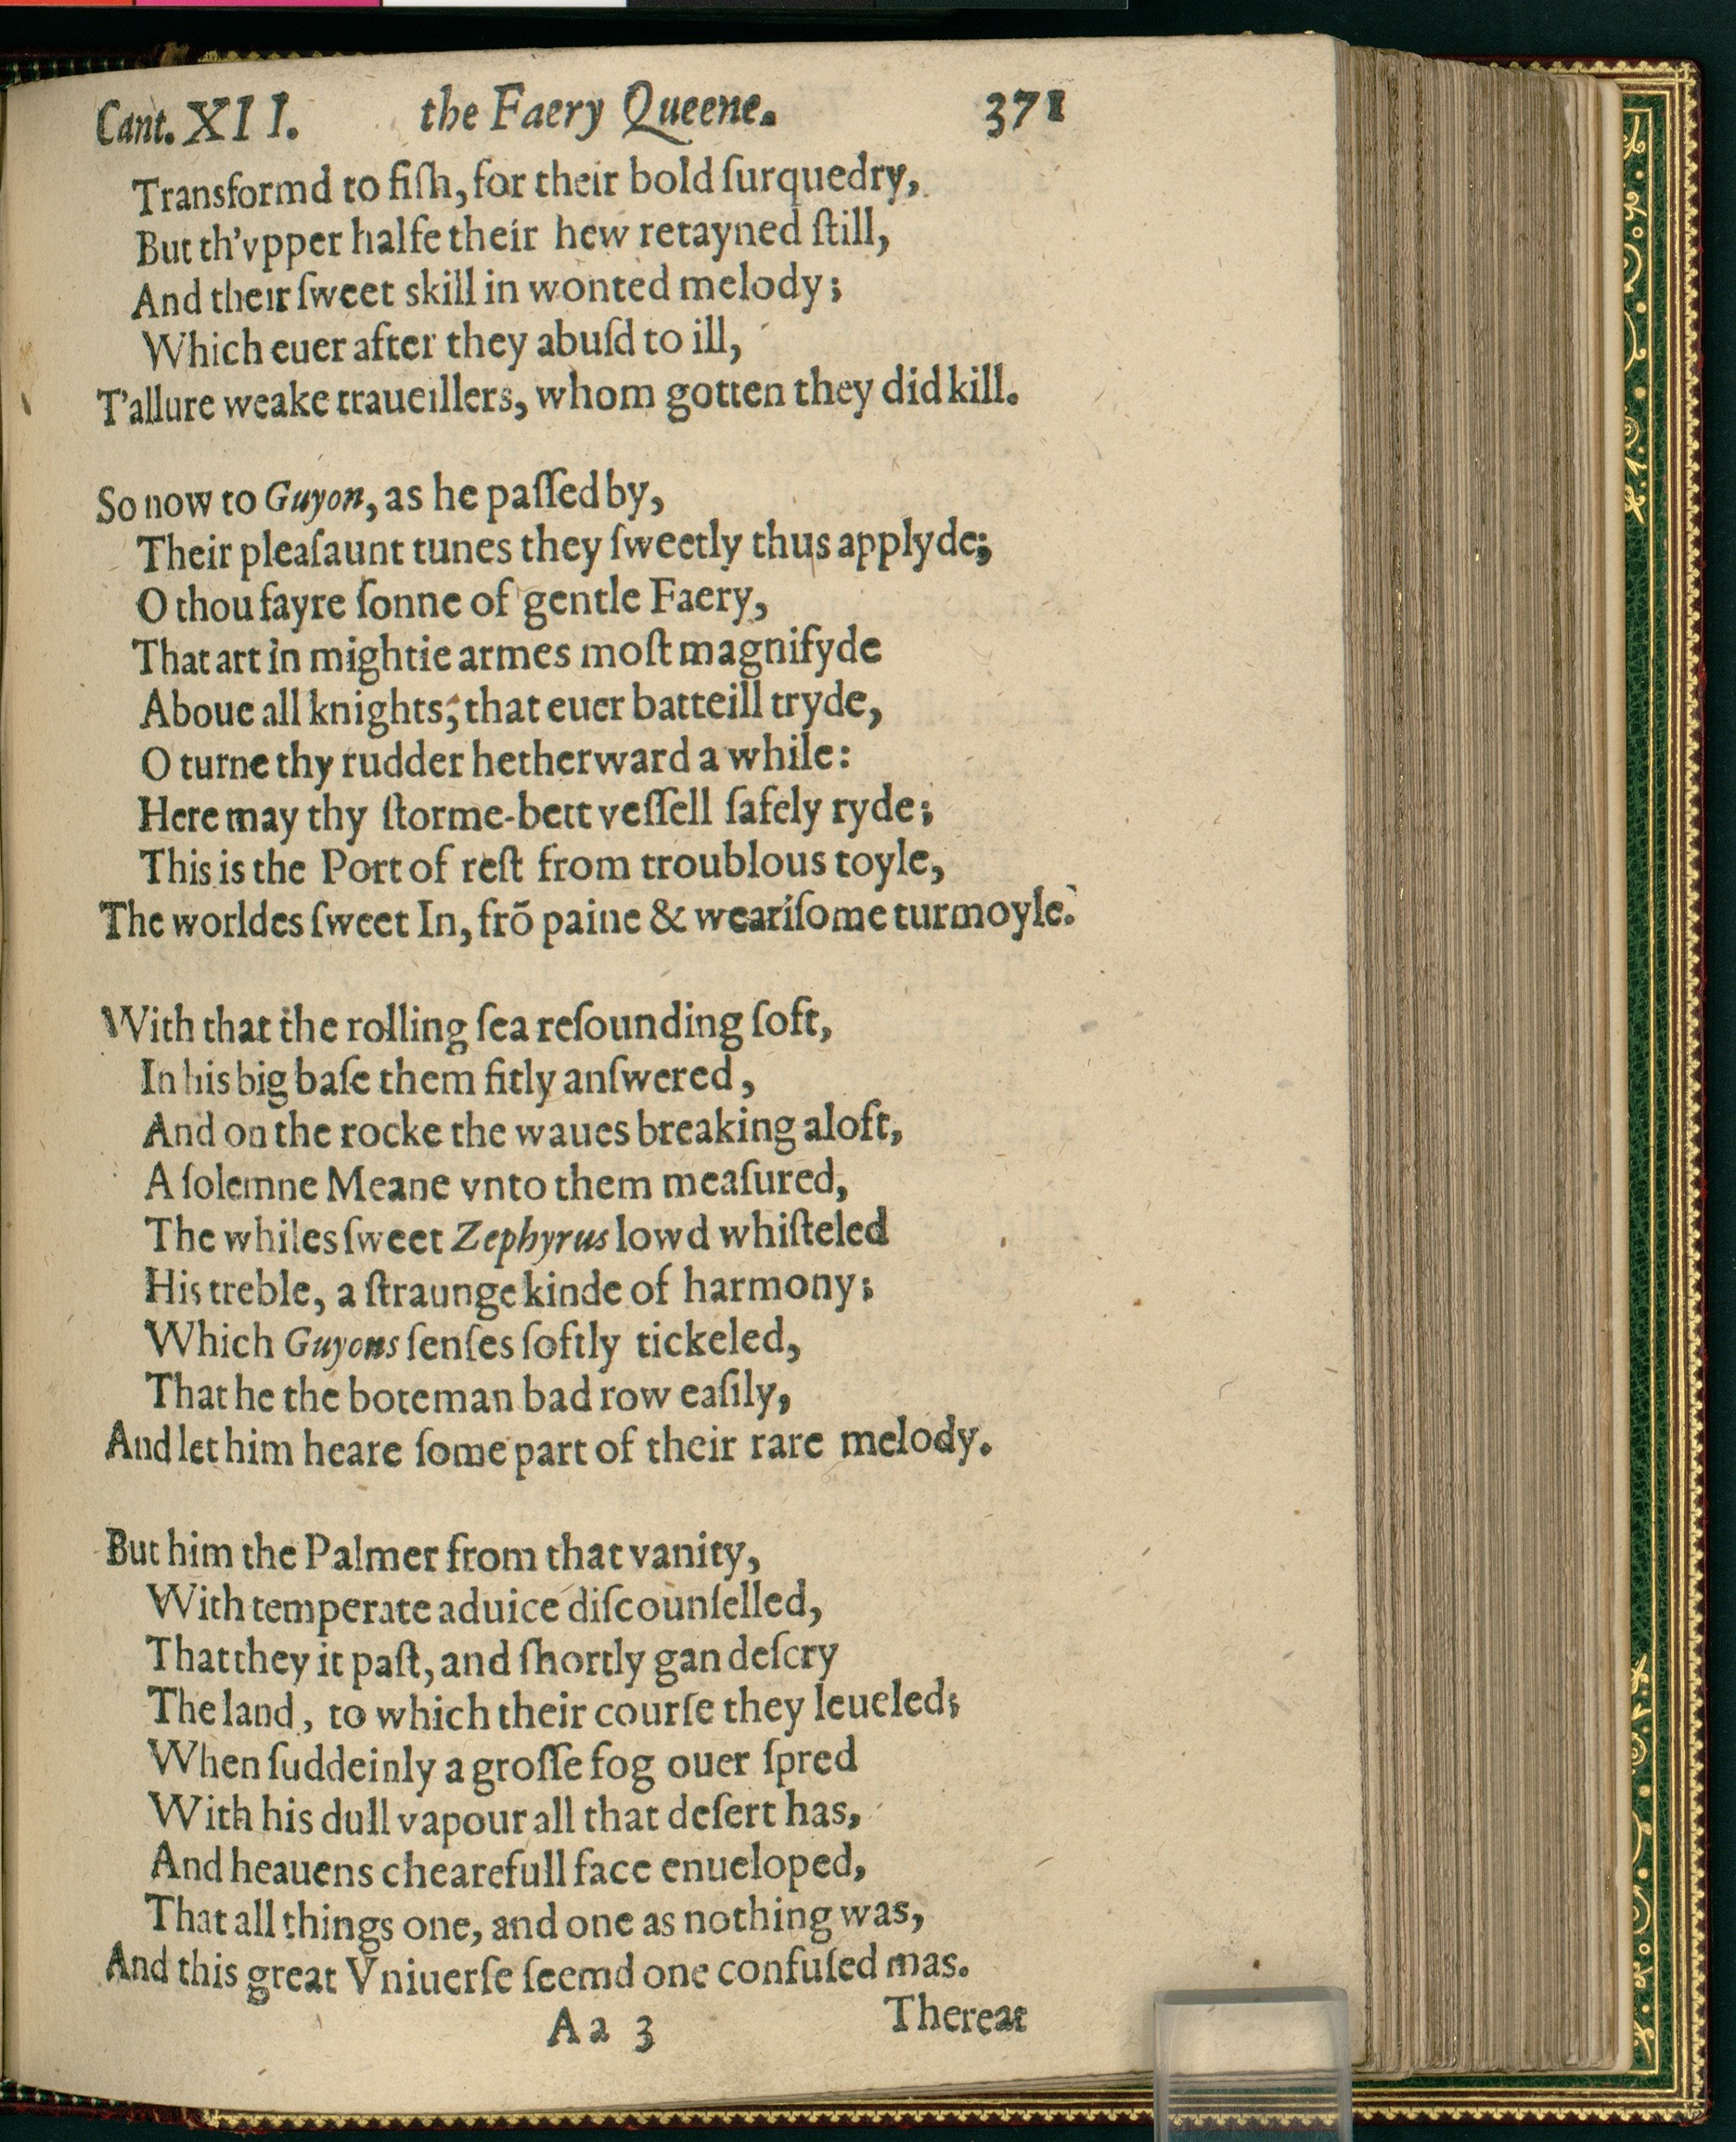 Cant. XII. the Faery Queene. 371
Transformd to fiſh, for their bold ſurquedry,
But th'vpper halfe their hew retayned ſtill,
And their ſweet skill in wonted melody;
Which euer after they abuſd to ill,
T'allure weake traueillers, whom gotten they did kill.
So now to Guyon, as he paſſed by,
Their pleaſaunt tunes they ſweetly thus applyde;
O thou fayre ſonne of gentle Faery,
That art in mightie armes moſt magnifyde
Aboue all knights, that euer batteill tryde,
O turne thy rudder hetherward a while:
Here may thy ſtorme-bett veſſell ſafely ryde;
This is the Port of reſt from troublous toyle,
The worldes ſweet In, frõ paine & weariſome turmoyle.
With that the rolling ſea reſounding ſoft,
In his big baſe them fitly anſwered,
And on the rocke the waues breaking aloft,
A ſolemne Meane vnto them meaſured,
The whiles ſweet Zephyrus lowd whiſteled
His treble, a ſtraunge kinde of harmony;
Which Guyons ſenſes ſoftly tickeled,
That he the boteman bad row eaſily,
And let him heare ſome part of their rare melody.
But him the Palmer from that vanity,
With temperate aduice diſcounſelled,
That they it paſt, and ſhortly gan deſcry
The land, to which their courſe they leueled;
When ſuddeinly a groſſe fog ouer ſpred
With his dull vapour all that deſert has,
And heauens chearefull face enueloped,
That all things one, and one as nothing was,
And this great Vniuerſe ſeemd one confuſed mas.
Aa 3 Thereat